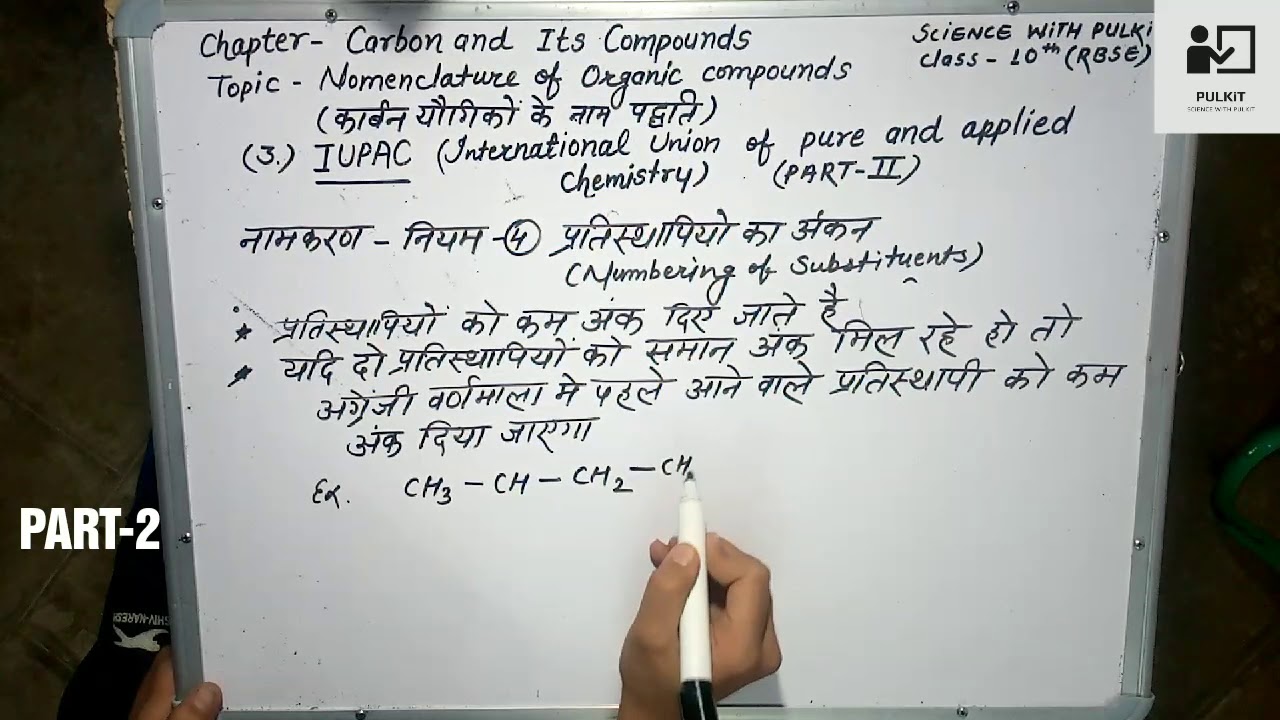 Chapter- Carbon and Its Compounds
SCIENCE WITH PULKI
Class - 10th (RBSE)
PULKiT
SCIENCE WITH PULKIT
Topic - Nomenclature of Organic compounds
(कार्बन यौगिकों के नाम पद्धति)
(3.) IUPAC (International Union of pure and applied
Chemistry) (PART-II)
नामकरण - नियम -④ प्रतिस्थापियो का अंकन
(Numbering of Substituents)
* प्रतिस्थापियों को कम अंक दिए जाते है
* यदि दो प्रतिस्थापियों को समान अंक मिल रहे हो तो
अग्रेंजी वर्णमाला मे पहले आने वाले प्रतिस्थापी को कम
अंक दिया जाएगा
Ex. CH3 - CH - CH2 - CH
PART-2
SHIV-NARESH